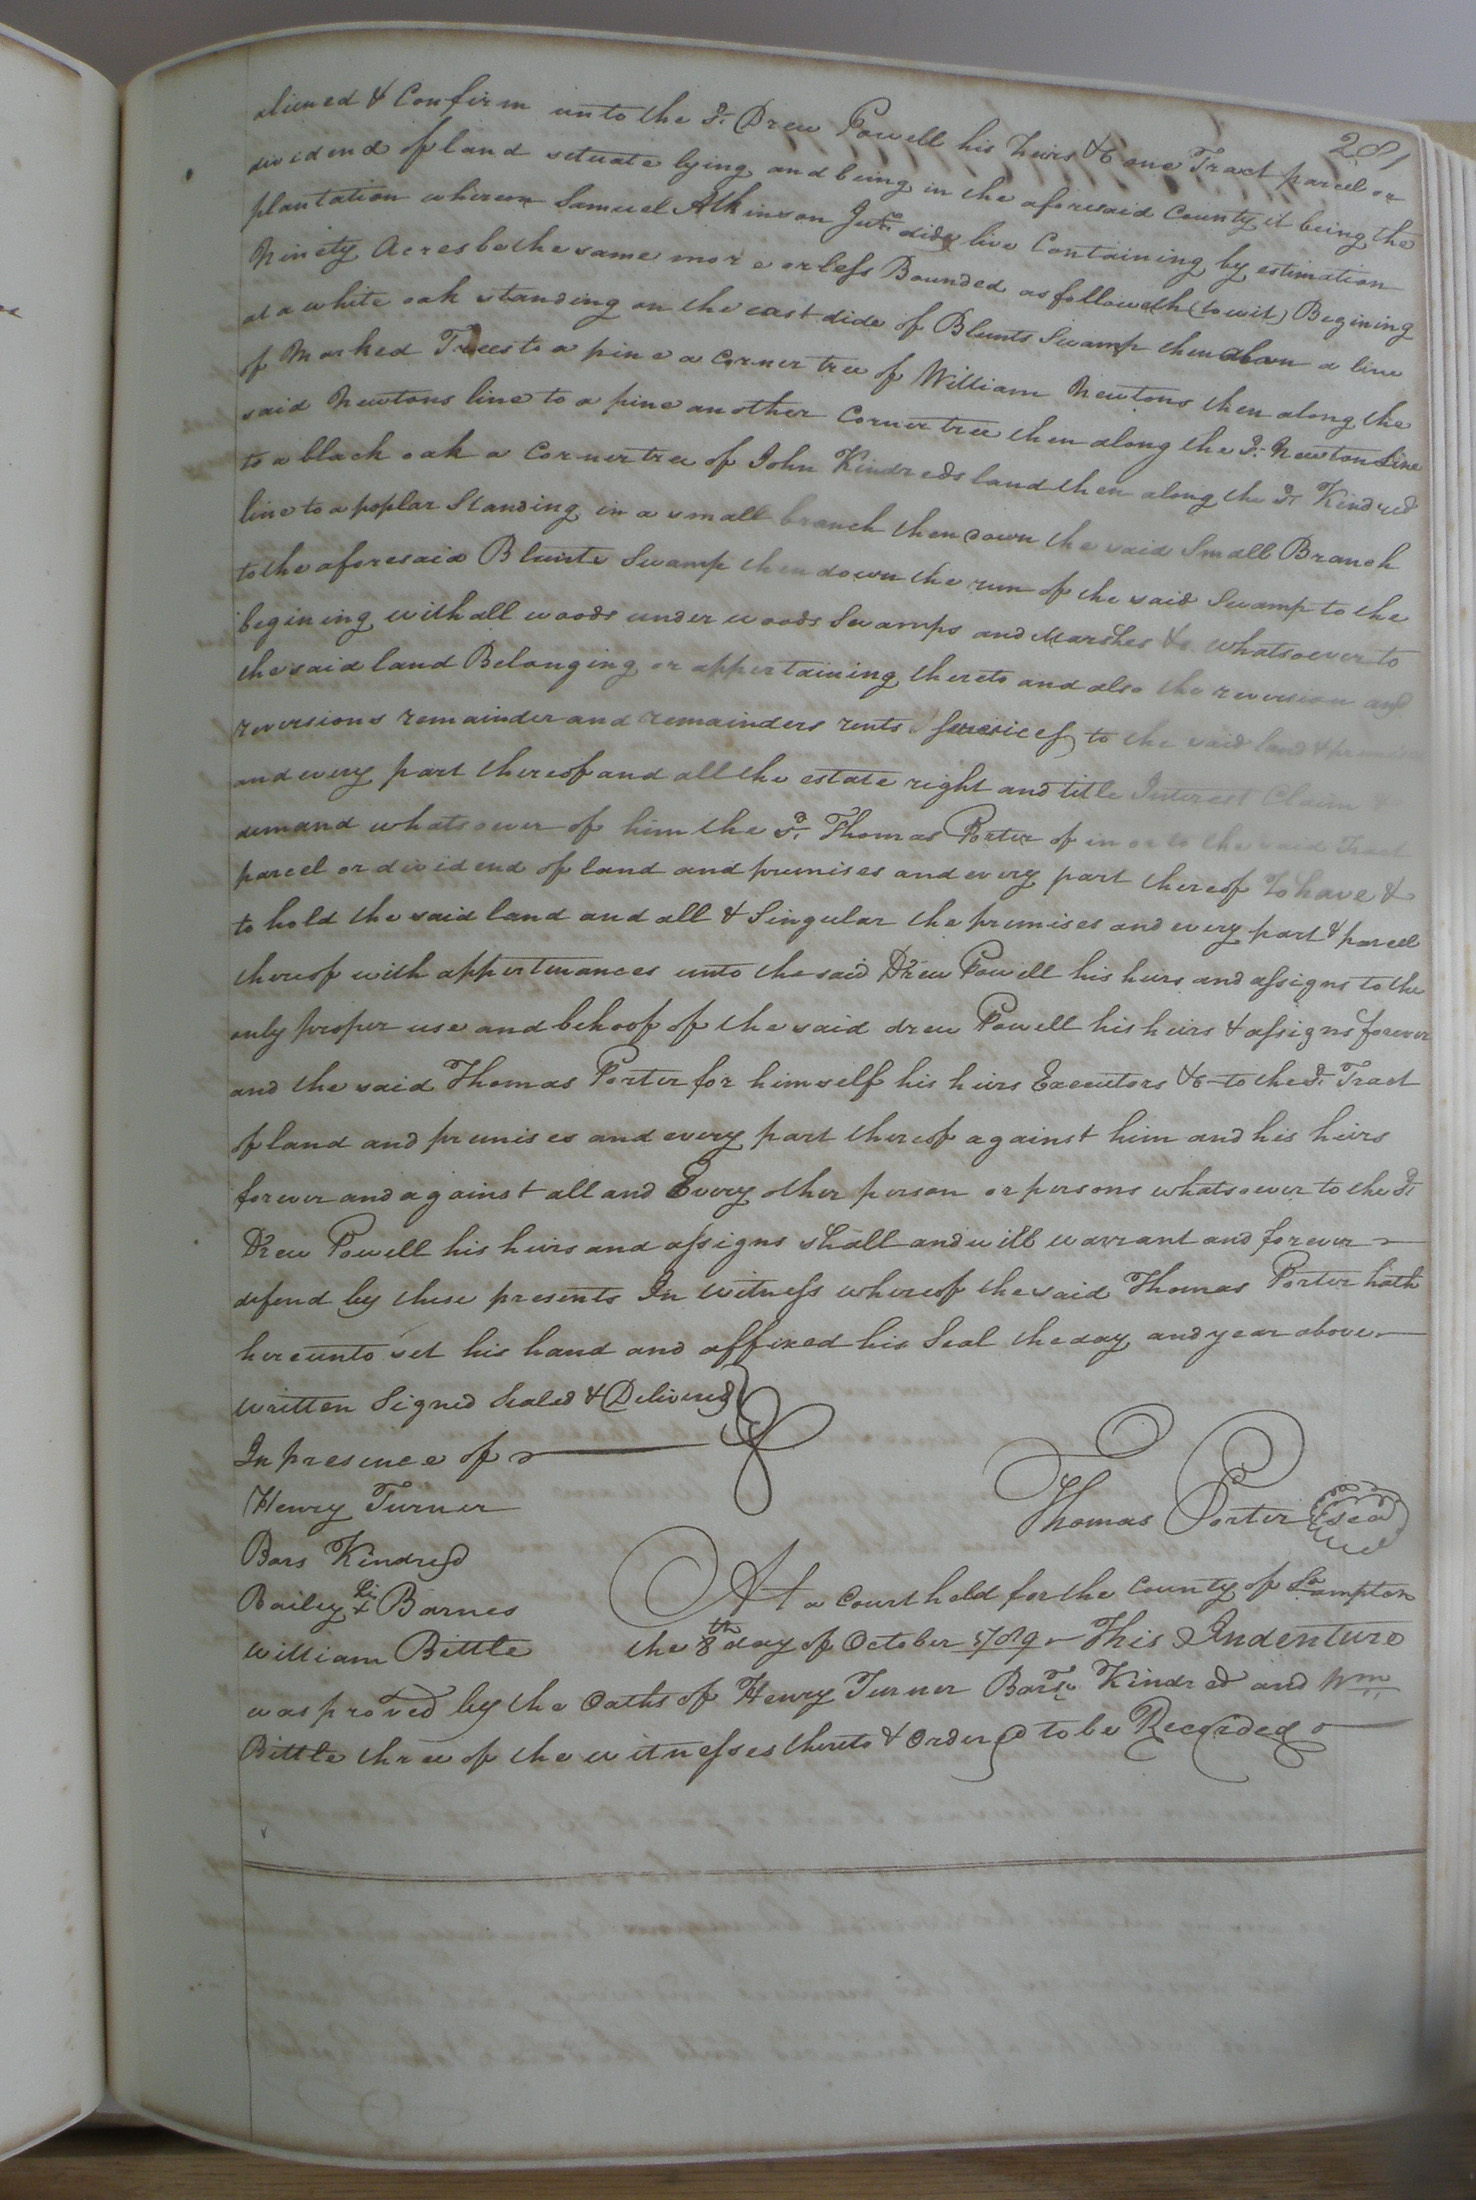 281
aliened & Confirm unto the sd. Drew Powell his heirs &c one Tract parcel or
dividend of land situate lying and being in the aforesaid County it being the
plantation whereon Samuel Atkinson Junr. did live Containing by estimation
Ninety Acres be the same more or less Bounded as followeth (to wit) Begining
at a white oak standing on the east side of Blunts Swamp then down a line
of Marked Trees to a pine a Corner tree of William Newtons then along the
said Newtons line to a pine another Corner tree then along the sd. Newtons line
to a black oak a Corner tree of John Kindreds land then along the sd. Kindred
line to a poplar Standing in a small branch then down the said Small Branch
to the aforesaid Blunts Swamp then down the run of the said Swamp to the
begining with all woods under woods Swamps and Marshes &c whatsoever to
the said land Belonging or appertaining thereto and also the reversion and
reversions remainder and remainders rents & services to the said land & premises
and every part thereof and all the estate right and title Interest Claim &
demand whatsoever of him the sd. Thomas Porter of in or to the said Tract
parcel or dividend of land and premises and every part thereof To have &
to hold the said land and all & Singular the premises and every part & parcel
thereof with appertenances unto the said Drew Powell his heirs and assigns to the
only proper use and behoof of the said drew Powell his heirs & assigns forever
and the said Thomas Porter for himself his heirs Executors &c to the sd. Tract
of land and premises and every part thereof against him and his heirs
forever and against all and Every other person or persons whatsoever to the sd.
Drew Powell his heirs and assigns shall and will warrant and forever
defend by these presents In witness whereof the said Thomas Porter hath
hereunto set his hand and affixed his Seal the day and year above
written Signed Sealed & Delivered
In presence of
Henry Turner
Thomas Porter (seal)
Bars Kindred
Bailey + Barnes
William Bittle
At a Court held for the County of So.ampton
the 8th day of October 1789 This Indenture
was proved by the Oaths of Henry Turner Bars. Kindred and Wm.
Bittle three of the witnesses thereto & Ordered to be Recorded